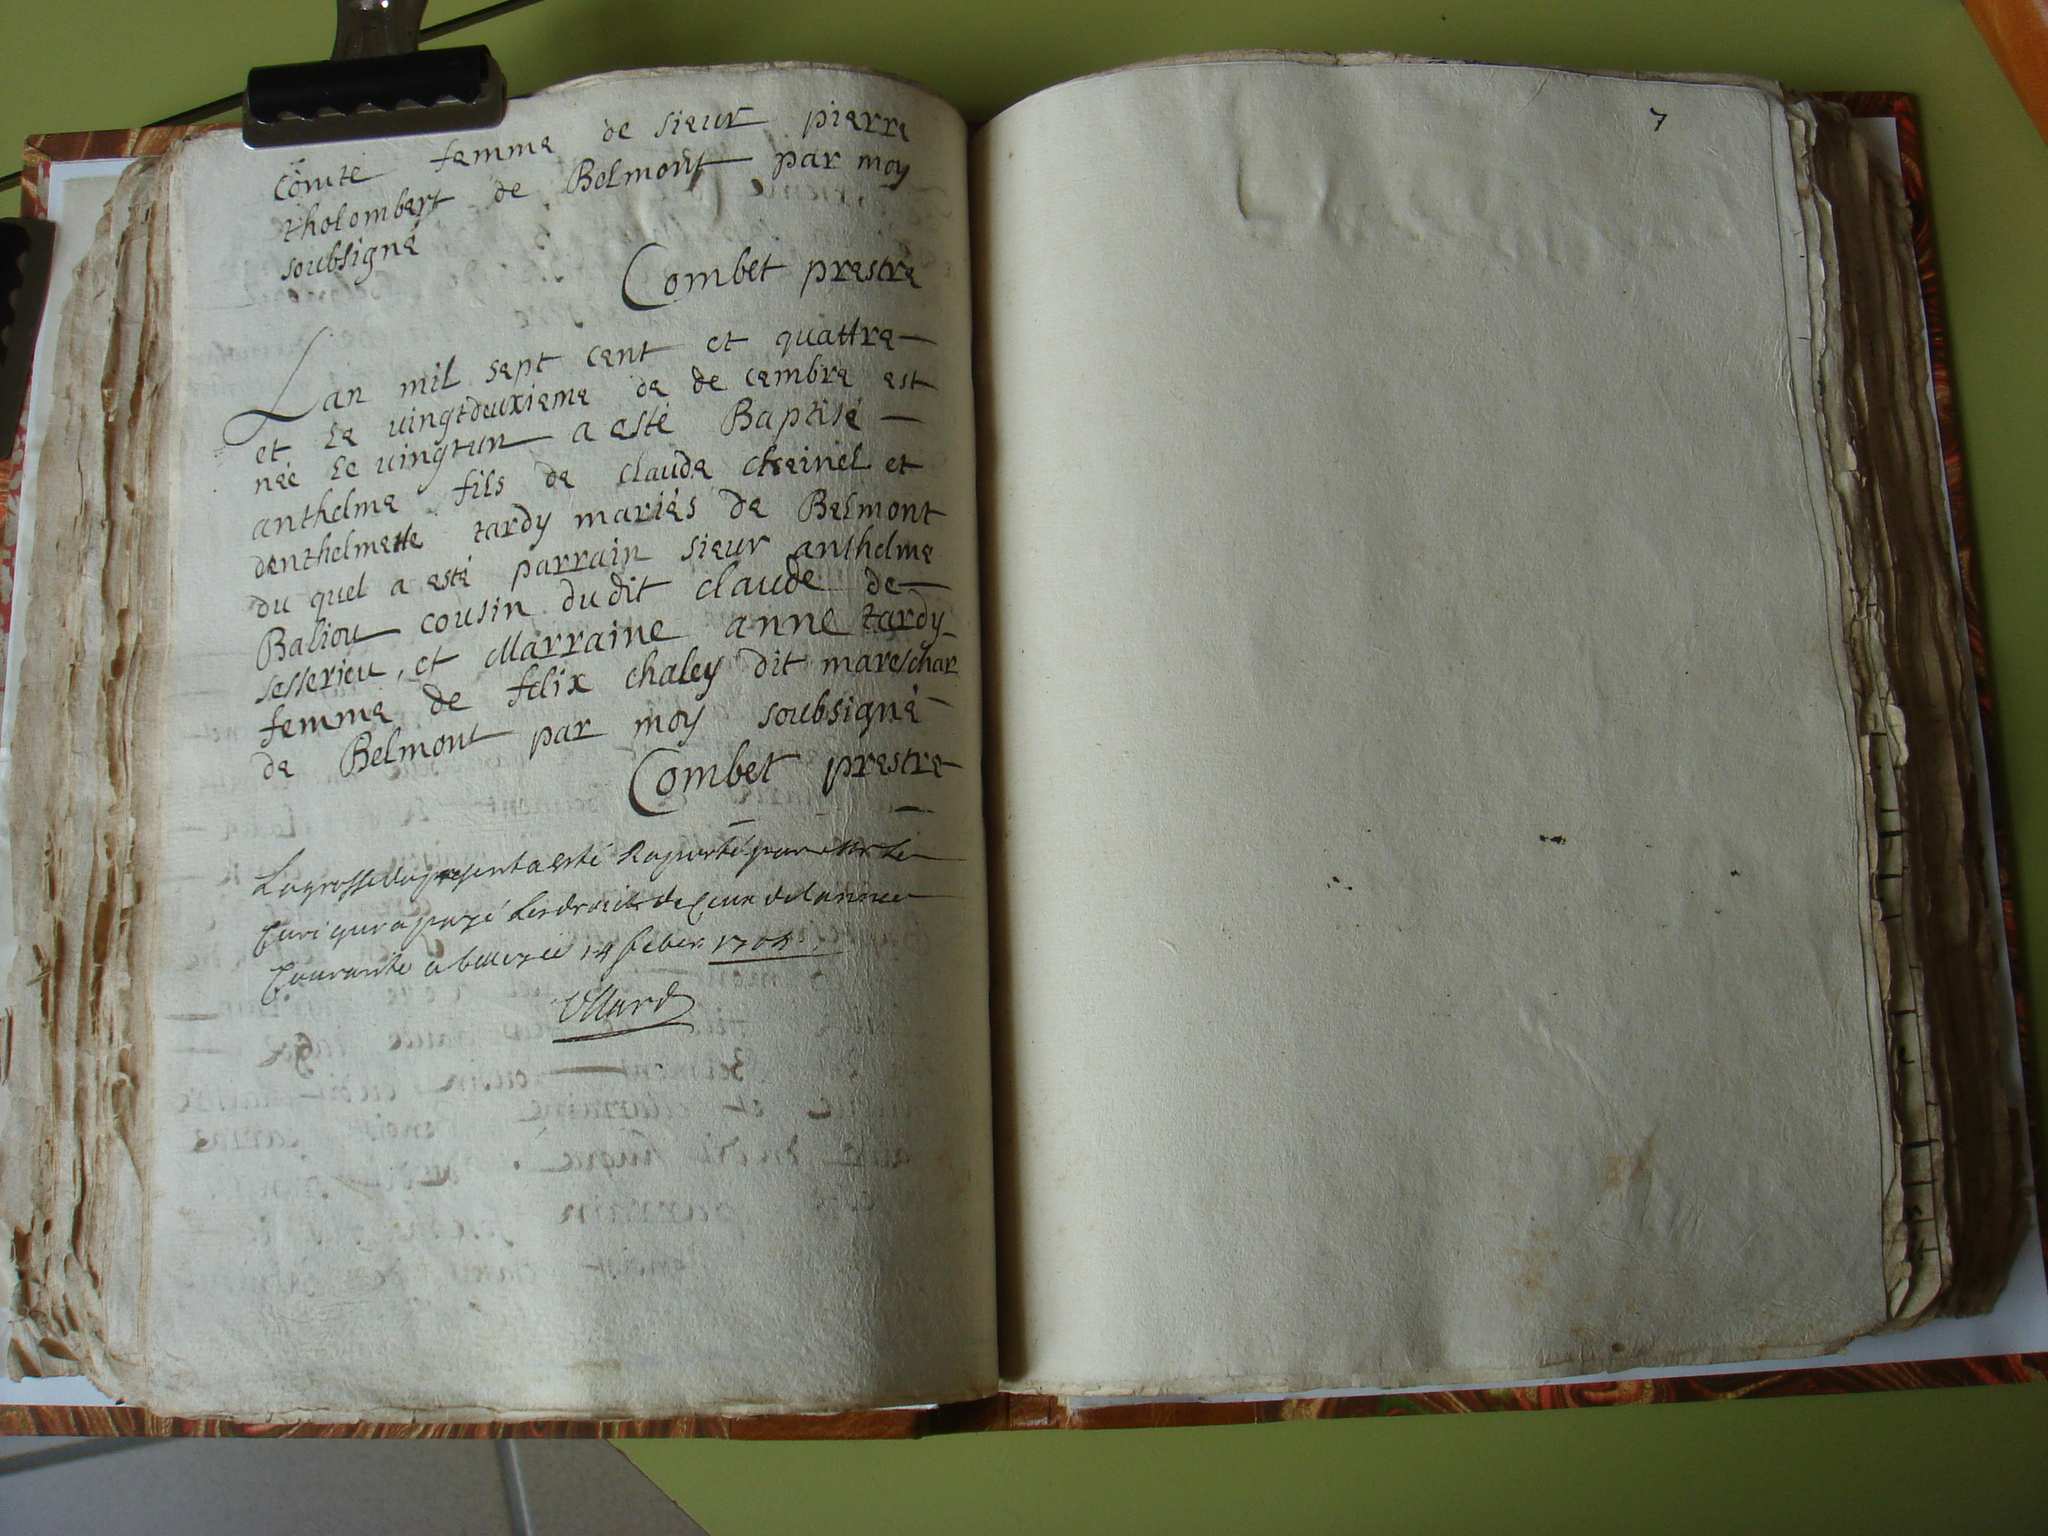 Comte femme de sieur pierre
tholombert de Belmont par moy
soubsigné
Combet prestre
Lan mil sept cent et quattre
et le vingtdeuxieme de decembre est
née le vingtun a esté Baptisé
anthelme fils de claude cheinel et
danthelmette tardy mariés de Belmont
du quel a esté parrain sieur anthelme
Baliou cousin dudit claude de
sesserieu, et Marraine anne tardy
femme de felix chaley dit mareschar
de Belmont par moy soubsigné
Combet prestre
La grosse du present a esté Raporté par Mr Le
Curé qui a payé Les droits de Ceux de lannee
Courante a belley ce 14 feber 1705
7